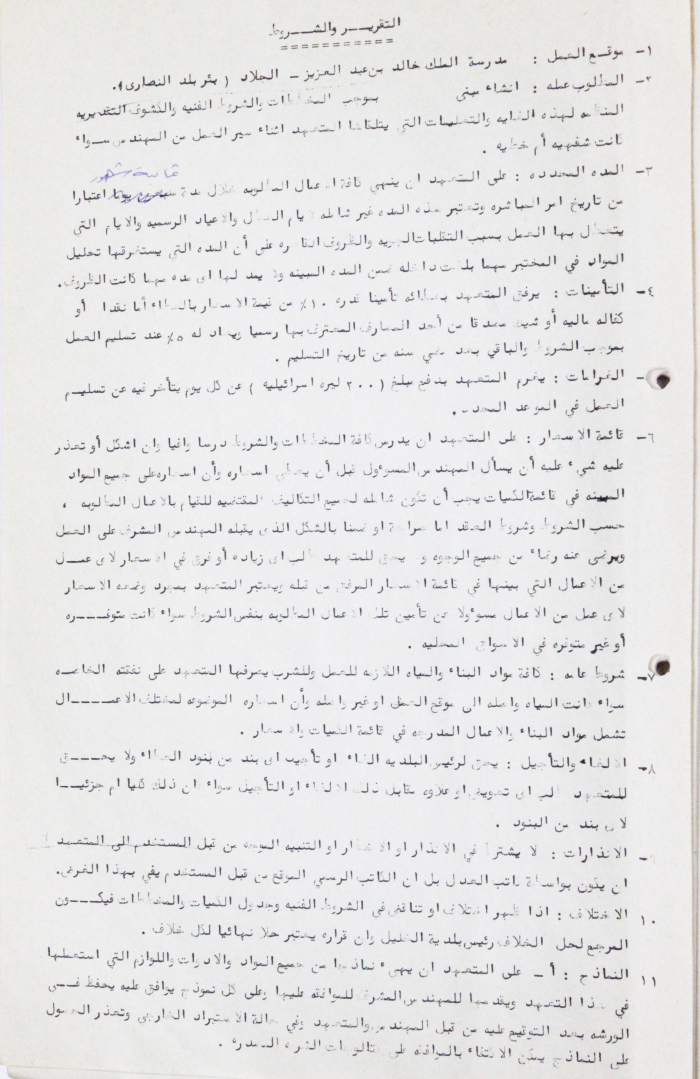 التقريــر والشــروط
١- موقع العمل : مدرسة الملك خالد بن عبد العزيز - الجلاد ( بئر بلد النصارى ) .
٢- المطلوب عمله : انشاء مبنى بموجب المخططات والشروط الفنيه والكشوف التقديريه
المنظمه لهذه الغايه والتعليمات التي يتلقاها المتعهد اثناء سير العمل من المهندس سواء
كانت شفهيه أم خطيه .
ثمانية شهور
٣- المده المحدده : على المتعهد ان ينهي كافة الاعمال المطلوبه خلال مدة يوما اعتبارا
من تاريخ امر المباشره وتعتبر هذه المده غير شامله لايام العطل والاعياد الرسميه والايام التي
يتعطل بها العمل بسبب التقلبات الجويه والظروف القاهره على أن المده التي يستغرقها تحليل
المواد في المختبر مهما بلغت داخله ضمن المده المبينه ولا يمدد لها اى مده مهما كانت الظروف.
٤- التأمينات : يرفق المتعهد بعطائه تأمينا قدره ١٠٪ من قيمة الاسعار بالعطاء أما نقدا أو
كفاله ماليه أو شيك مصدقا من أحد المصارف المعترف بها رسميا ويعاد له ٥٪ عند تسليم العمل
بموجب الشروط والباقي بعد مضي سنه من تاريخ التسليم .
- الغرامات : يغرم المتعهد بدفع مبلغ ( ٢٠٠ ليره اسرائيليه ) عن كل يوم يتأخر فيه عن تسليم
العمل في الموعد المحدد .
٦- قائمة الاسعار : على المتعهد ان يدرس كافة المخططات والشروط درسا وافيا وان اشكل أو تعذر
عليه شيء عليه أن يسأل المهندس المسؤول قبل أن يعطي اسعاره وأن اسعاره على جميع المواد
المبينه في قائمة الكميات يجب أن تكون شامله لجميع التكاليف المقتضيه للقيام بالاعمال المطلوبه ،
حسب الشروط وشروط العقد اما صراحة او ضمنا بالشكل الذى يقبله المهندس المشرف على العمل
ويرضى عنه رضاء من جميع الوجوه ولا يحق للمتعهد طلب اى زياده أو فرق في الاسعار لاى عمــل
من الاعمال التي يبينها في قائمة الاسعار المرفق من قبله ويعتبر المتعهد بمجرد وضعه الاسعار
لاى عمل من الاعمال مسؤولا عن تأمين تلك الاعمال المطلوبه بنفس الشروط سواء كانت متوفــره
أو غير متوفره في الاسواق المحليه .
٧- شروط عامه : كافة مواد البناء والمياه اللازمه للعمل وللشرب يصرفها المتعهد على نفقته الخاصه
سواء كانت المياه واصله الى موقع العمل او غير واصله وأن اسعاره الموضوعه لمختلف الاعمــال
تشمل مواد البناء والاعمال المدرجه في قائمة الكميات والاسعار .
٨- الالغاء والتأجيل : يحق لرئيس البلديه الغاء او تأجيل اى بند من بنود العطاء ولا يحــق
للمتعهد طلب اى تعويض او علاوه مقابل ذلك الالغاء او التأجيل سواء كان ذلك كليا ام جزئيــا
لاى بند من البنود .
- الانذارات : لا يشترط في الانذار او الاخطار او التنبيه الموجه من قبل المستخدم الى المتعهد
ان يكون بواسطة كاتب العدل بل ان الكتاب الرسمي الموقع من قبل المستخدم يفي بهذا الغرض.
١٠ الاختلاف : اذا ظهر اختلاف او تناقض في الشروط الفنيه وجدول الكميات والمخططات فيكــون
المرجع لحل الخلاف رئيس بلدية الخليل وان قراره يعتبر حلا نهائيا لكل خلاف .
١١ النماذج : أ- على المتعهد ان يهيء نماذجا من جميع المواد والادوات واللوازم التي استعملها
في هذا التعهد ويقدمها للمهندس المشرف للموافقه عليها وعلى كل نموذج يوافق عليه يحفظ فــى
الورشه بعد التوقيع عليه من قبل المهندس والمتعهد وفي حالة الاستيراد الخارجي وتعذر الحصول
على النماذج يمكن الاكتفاء بالموافقه على كتالوجات الشركه المصدره .